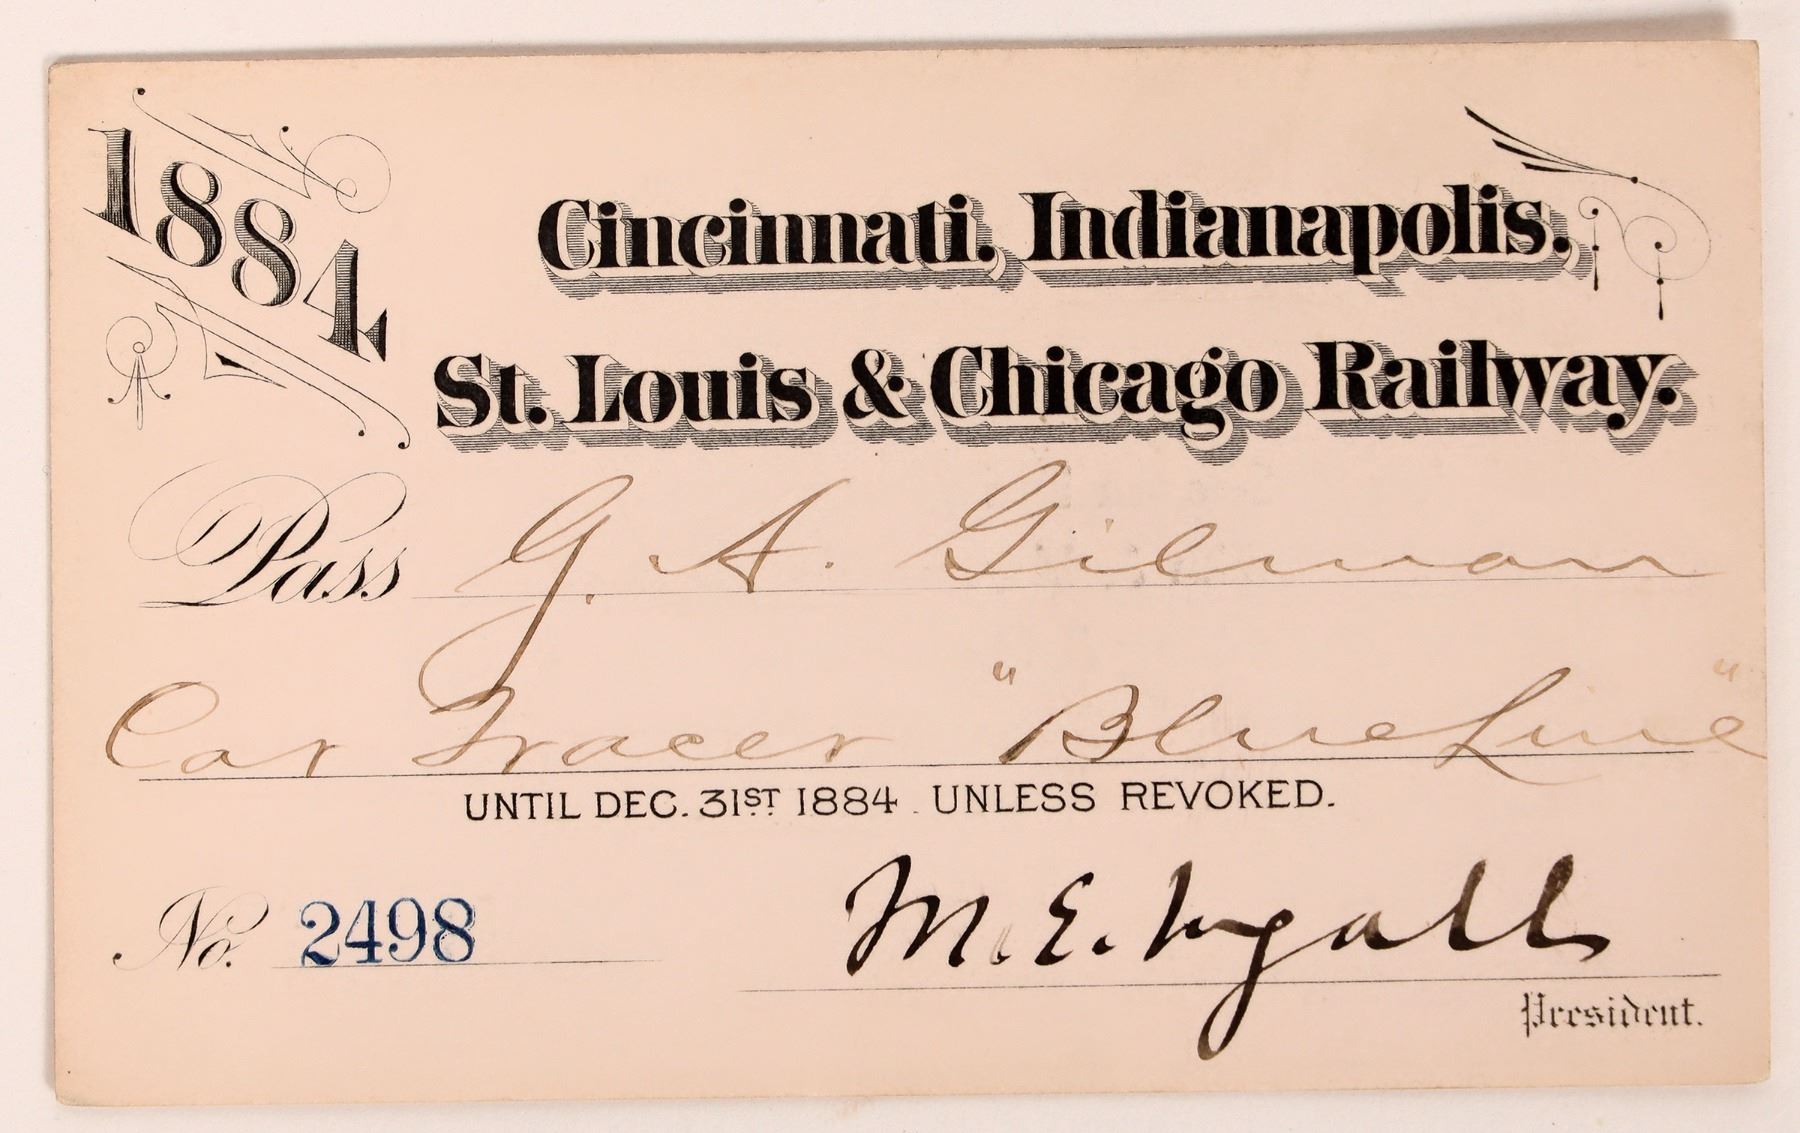 1884
Cincinnati, Indianapolis,
St. Louis & Chicago Railway.
Pass G. A. Gilman
Car Tracer "Blue Line"
UNTIL DEC. 31ST 1884. UNLESS REVOKED.
No. 2498
M. E. Ingalls
President.